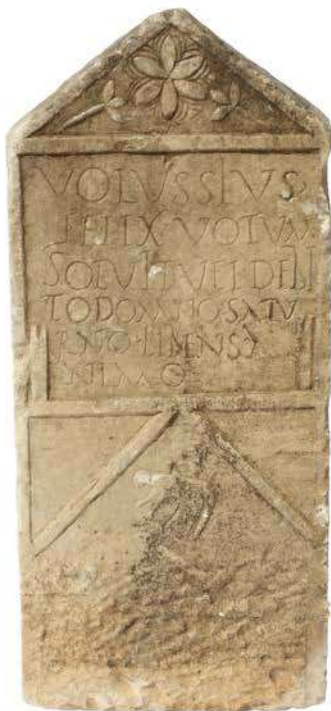 VOLVSSIVS
FELIX VOTVM
SOLVIT DEBI
TO DOMINO SATV
RNO LIBENS A
NIMO